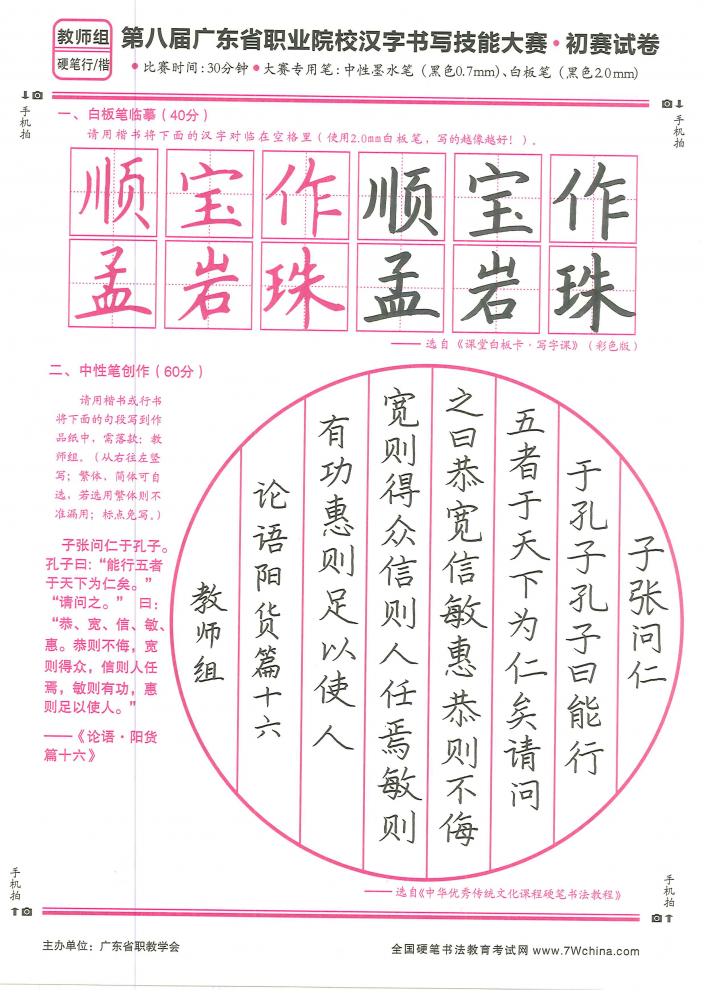 教师组
硬笔行/楷
第八届广东省职业院校汉字书写技能大赛·初赛试卷
●比赛时间:30分钟●大赛专用笔:中性墨水笔(黑色0.7mm)、白板笔(黑色2.0mm)
手机拍
手机拍
一、白板笔临摹(40分)
请用楷书将下面的汉字对临在空格里(使用2.0mm白板笔，写的越像越好!)。
顺宝作顺宝作
孟岩珠孟岩珠
——选自《课堂白板卡·写字课》(彩色版)
二、中性笔创作(60分)
请用楷书或行书
将下面的句段写到作
品纸中，需落款：教
师组。(从右往左竖
写；繁体、简体可自
选，若选用繁体则不
准漏用；标点免写。)
子张问仁于孔子。
孔子曰:“能行五者
于天下为仁矣。”
“请问之。” 曰:
“恭、宽、信、敏、
惠。恭则不侮，宽
则得众，信则人任
焉，敏则有功，惠
则足以使人。”
——《论语·阳货
篇十六》
子张问仁
于孔子孔子曰能行
五者于天下为仁矣请问
之曰恭宽信敏惠恭则不侮
宽则得众信则人任焉敏则
有功惠则足以使人
论语阳货篇十六
教师组
——选自《中华优秀传统文化课程硬笔书法教程》
手机拍
手机拍
主办单位：广东省职教学会
全国硬笔书法教育考试网 www.7Wchina.com